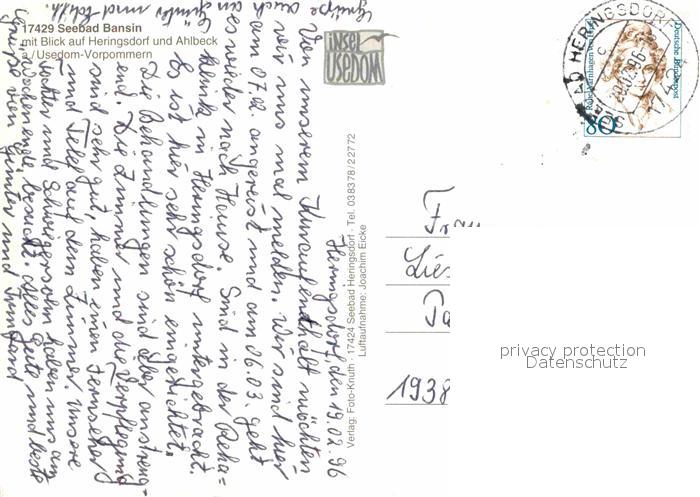 17429 Seebad Bansin
mit Blick auf Heringsdorf und Ahlbeck
a./Usedom-Vorpommern
insel
USEDOM
Verlag: Foto-Knuth · 17424 Seebad Heringsdorf · Tel. 038378/22772
Luftaufnahme: Joachim Eicke
Heringsdorf, den 19.02.96
Von unserem Kuraufenthalt möchten
wir uns mal melden. Wir sind hier
am 07.02. angereist und am 06.03. geht
es wieder nach Hause. Sind in der Reha=
klinik in Heringsdorf untergebracht.
Es ist hier sehr schön eingerichtet.
Die Behandlungen sind aber anstreng-
end. Die Zimmer und die Verpflegung
sind sehr gut, haben einen Fernseher
und Telef. auf dem Zimmer. Unsere
Tochter und Schwiegersohn haben uns am
Wochenende besucht. Alles Gute und beste
Grüße von Günter und
Grüße auch an
Günter und
Fr
Lies
Pa
1938
Deutsche Bundespost
Rahel Varnhagen von Ense
80
HERINGSDORF
17424
privacy protection
Datenschutz